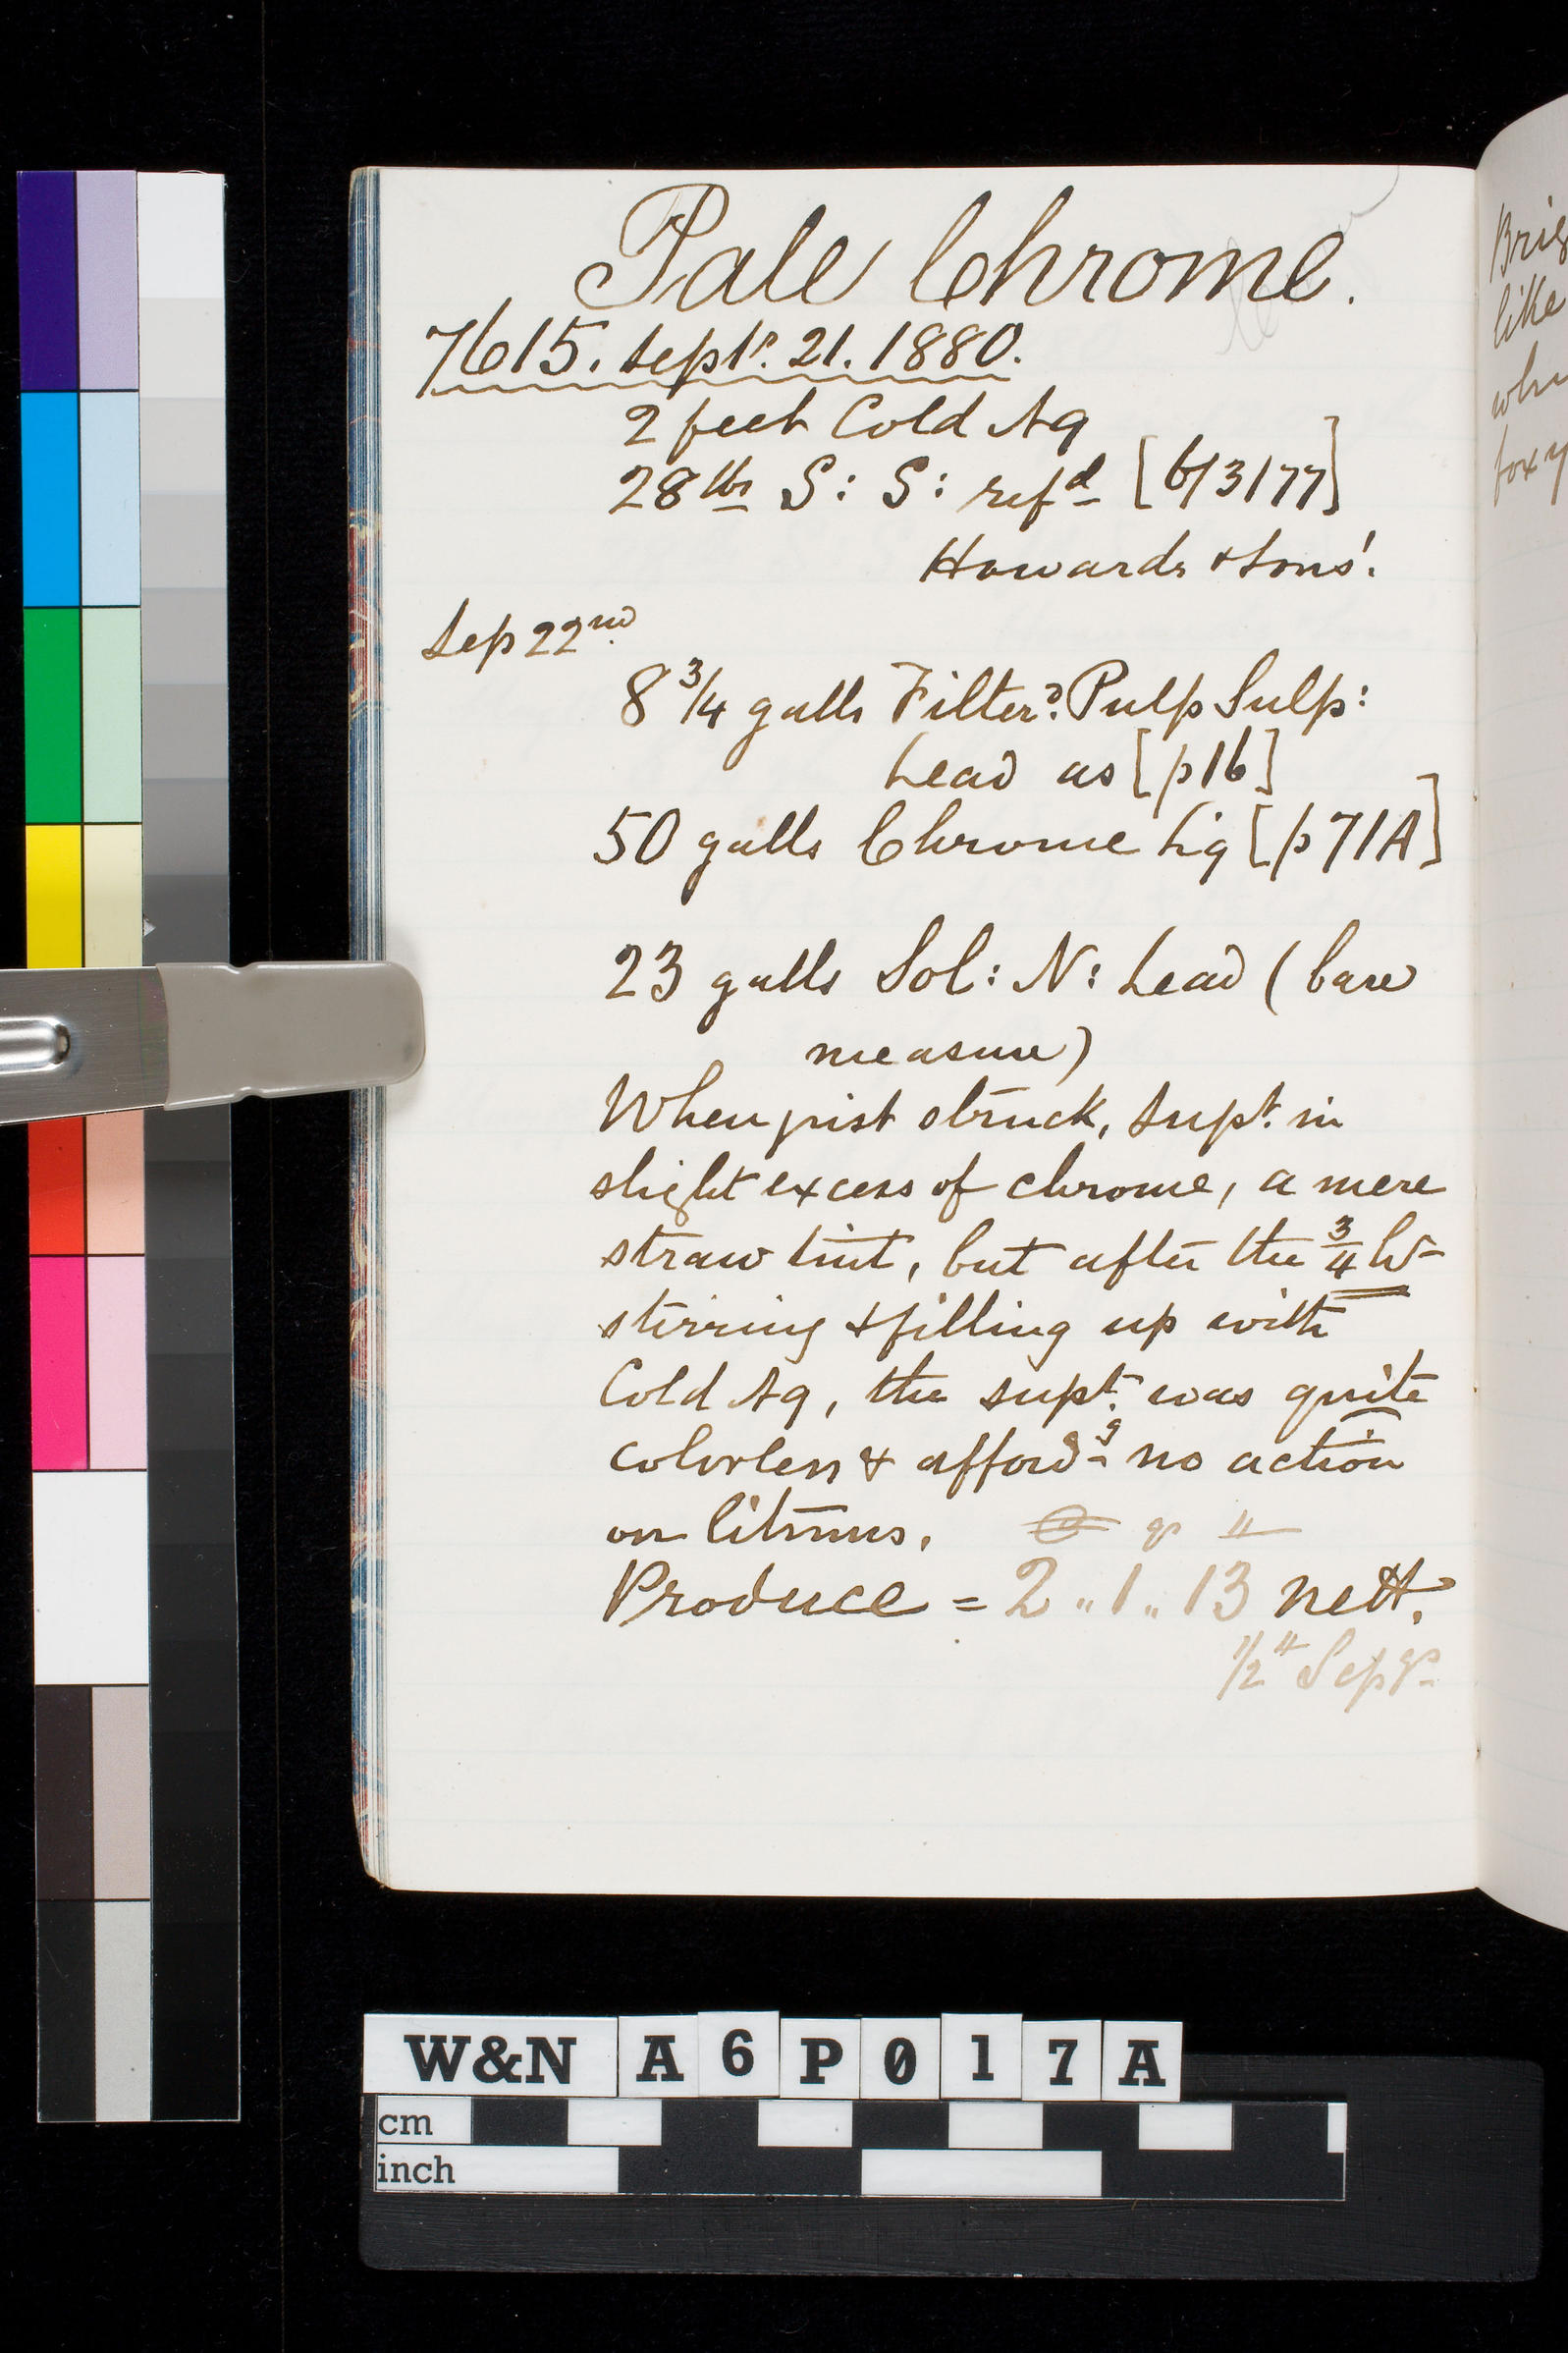 Pale Chrome.
7615. Sept.r 21. 1880.
2 feet Cold Aq
28 lbs S: S: refd [6/3/77]
Howards & Sons'.
Sep 22nd
8 3/4 galls Filterd. Pulp Sulp:
Lead as [p16]
50 galls Chrome Liq [p71A]
23 galls Sol: N: Lead (bare
measure)
When just struck, Supt. in
slight excess of chrome, a mere
straw tint, but after the 3/4 hr
stirring & filling up with
Cold Aq, the supt. was quite
colorless & affordg no action
on litmus.
qr lb
Produce = 2 .. 1 .. 13 nett.
1/2 lb Sepgs
Brig
like
whi
foxy
W&N A6P017A
cm
inch